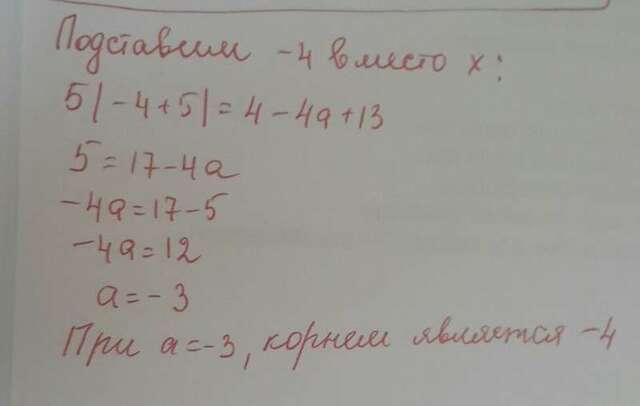 Подставим -4 вместо x:
5|-4+5|=4-4a+13
5=17-4a
-4a=17-5
-4a=12
a=-3
При a=-3, корнем является -4